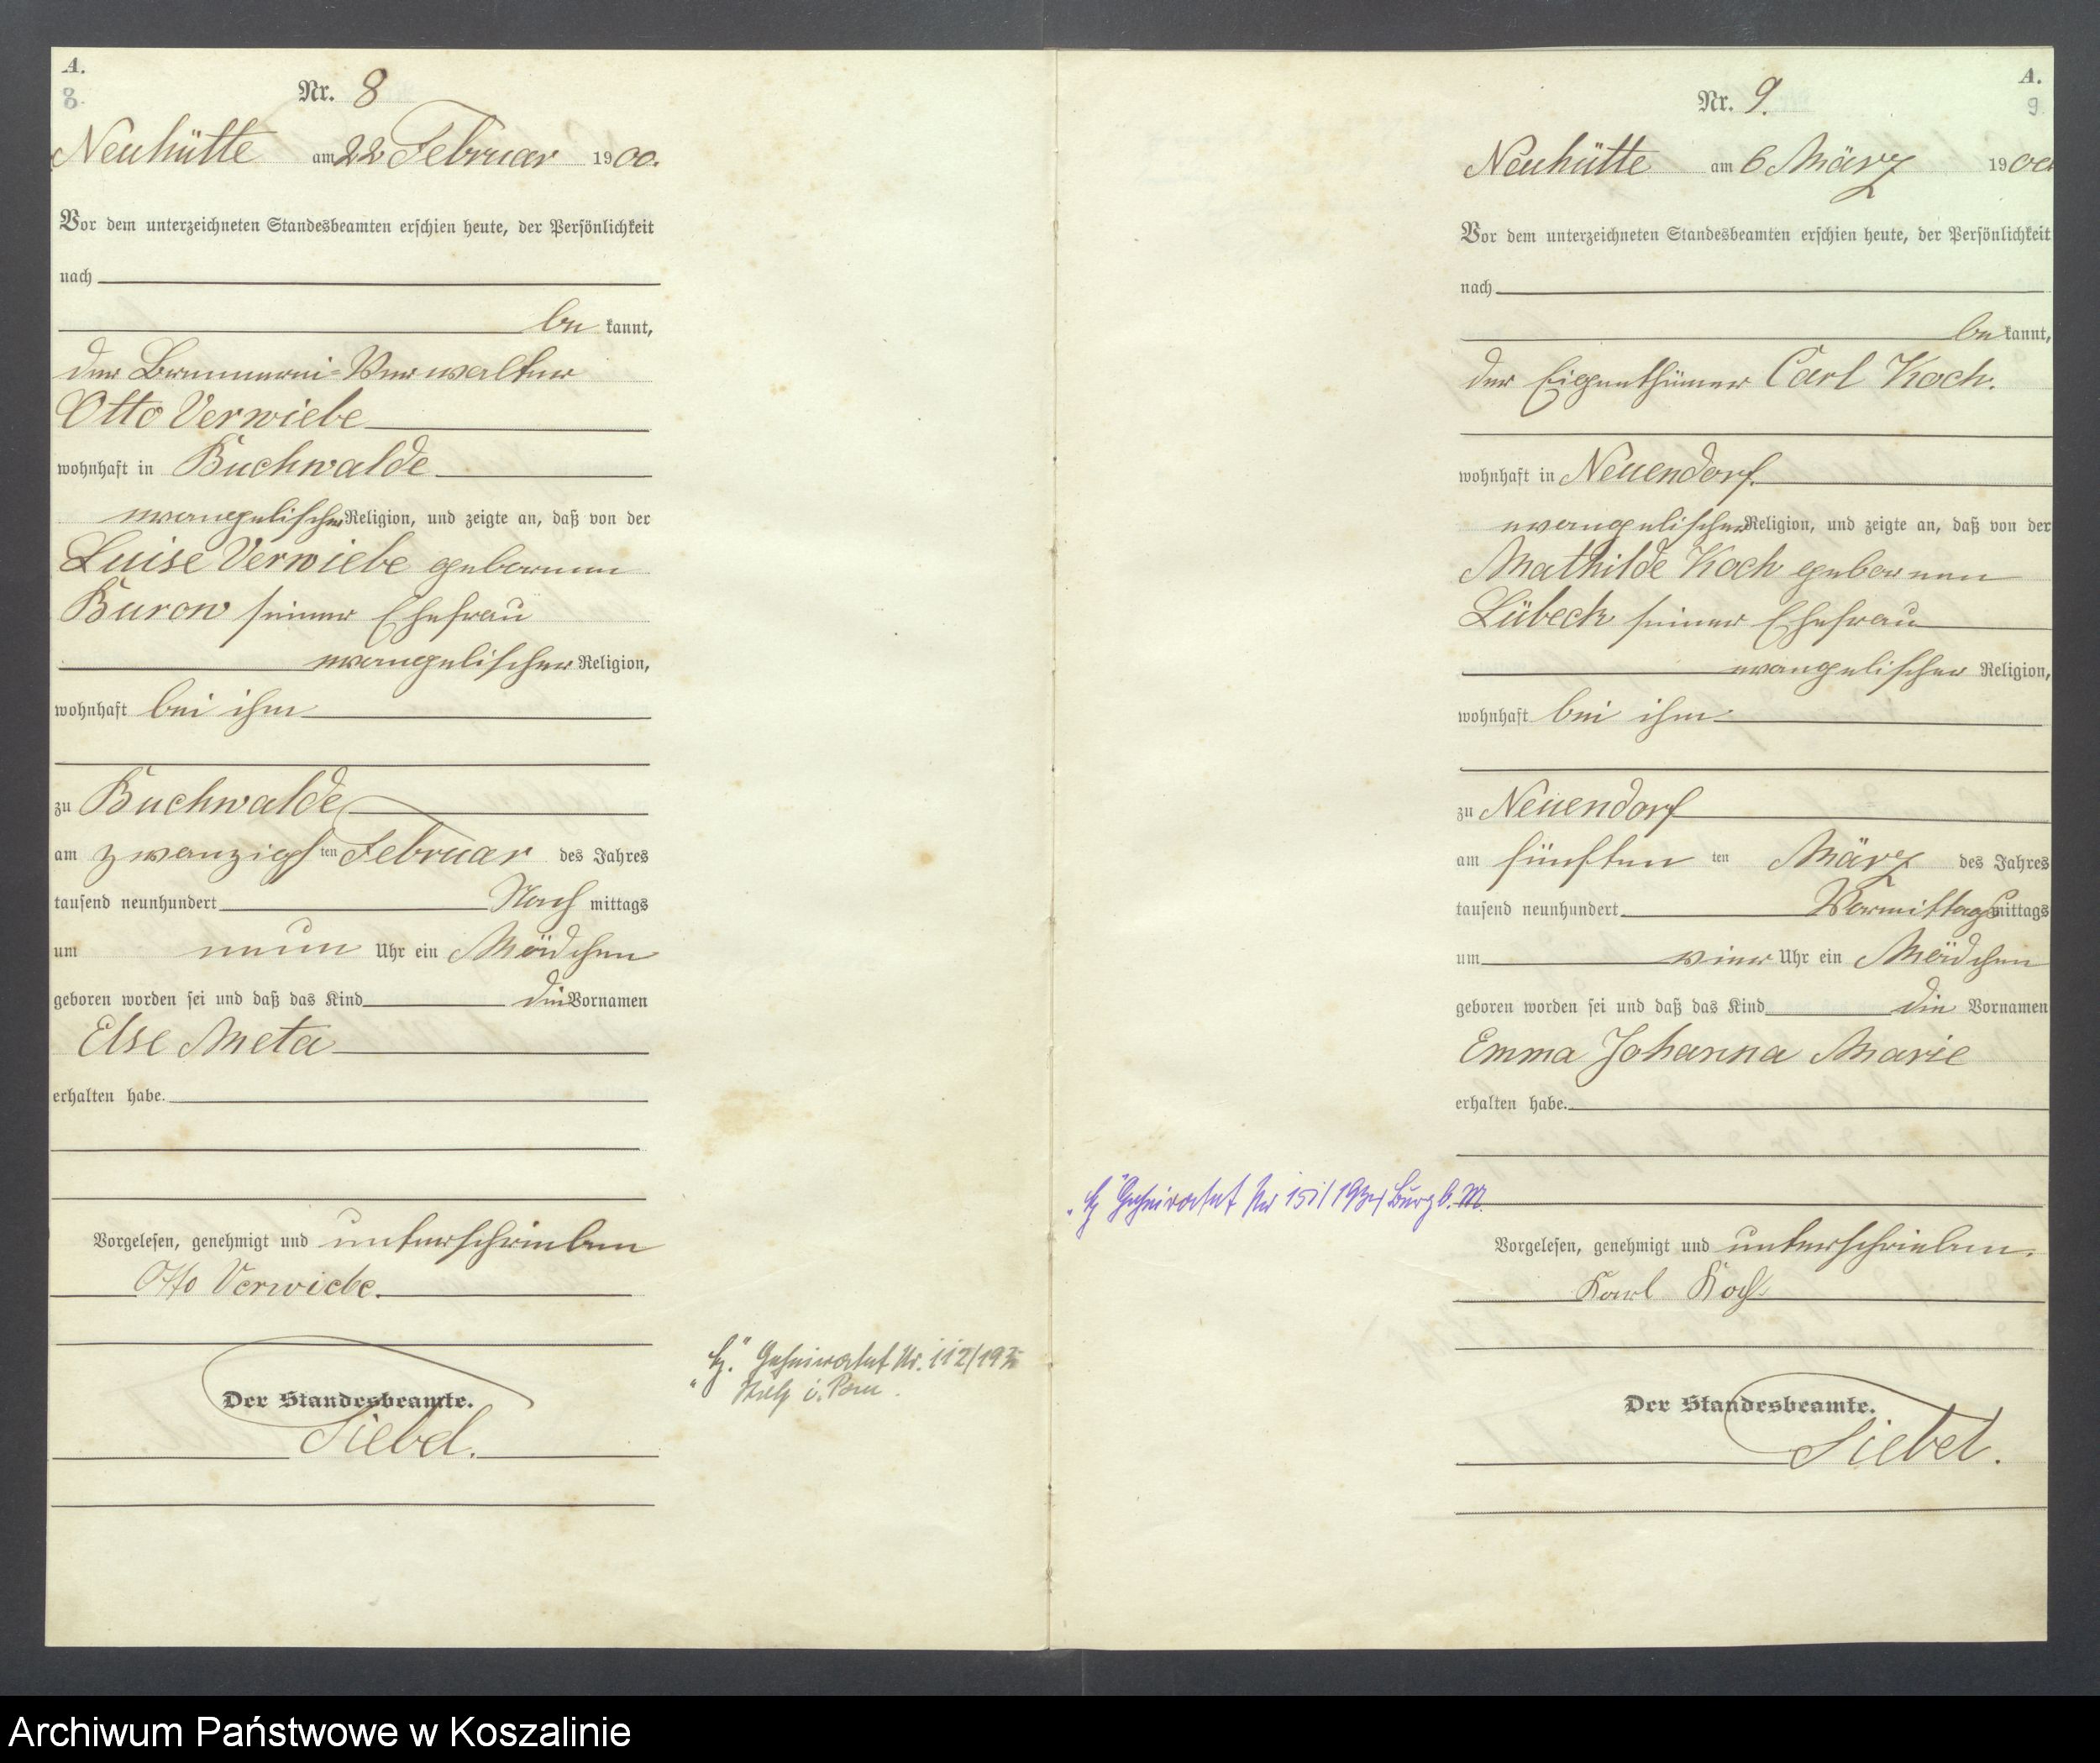 A.
8.
Nr. 8
Neuhütte am 22 Februar 1900.
Vor dem unterzeichneten Standesbeamten erschien heute, der Persönlichkeit
nach
be kannt,
der Brennerei-Verwalter
Otto Verwiebe
wohnhaft in Buchwalde
evangelischer Religion, und zeigte an, daß von der
Luise Verwiebe geborenen
Burow seiner Ehefrau
evangelischer Religion,
wohnhaft bei ihm
zu Buchwalde
am zwanzigsten Februar des Jahres
tausend neunhundert Nach mittags
um neun Uhr ein Mädchen
geboren worden sei und daß das Kind die Vornamen
Else Meta
erhalten habe.
Vorgelesen, genehmigt und unterschrieben
Otto Verwiebe.
Der Standesbeamte.
Siebel.
Geheiratet Nr. 112/193
i. Pom.
A.
9
Nr. 9.
Neuhütte am 6 März 1900
Vor dem unterzeichneten Standesbeamten erschien heute, der Persönlichkeit
nach
be kannt,
der Eigenthümer Carl Koch.
wohnhaft in Neuendorf.
evangelischer Religion, und zeigte an, daß von der
Mathilde Koch geborenen
Lübeck seiner Ehefrau
evangelischer Religion,
wohnhaft bei ihm
zu Neuendorf
am fünften ten März des Jahres
tausend neunhundert Vormittags mittags
um vier Uhr ein Mädchen
geboren worden sei und daß das Kind die Vornamen
Emma Johanna Marie
erhalten habe.
Geheiratet Nr Burg b. M.
Vorgelesen, genehmigt und unterschrieben.
Karl Koch
Der Standesbeamte.
Siebel.
Archiwum Państwowe w Koszalinie